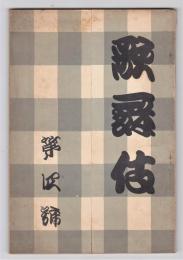 歌舞伎
第弐號